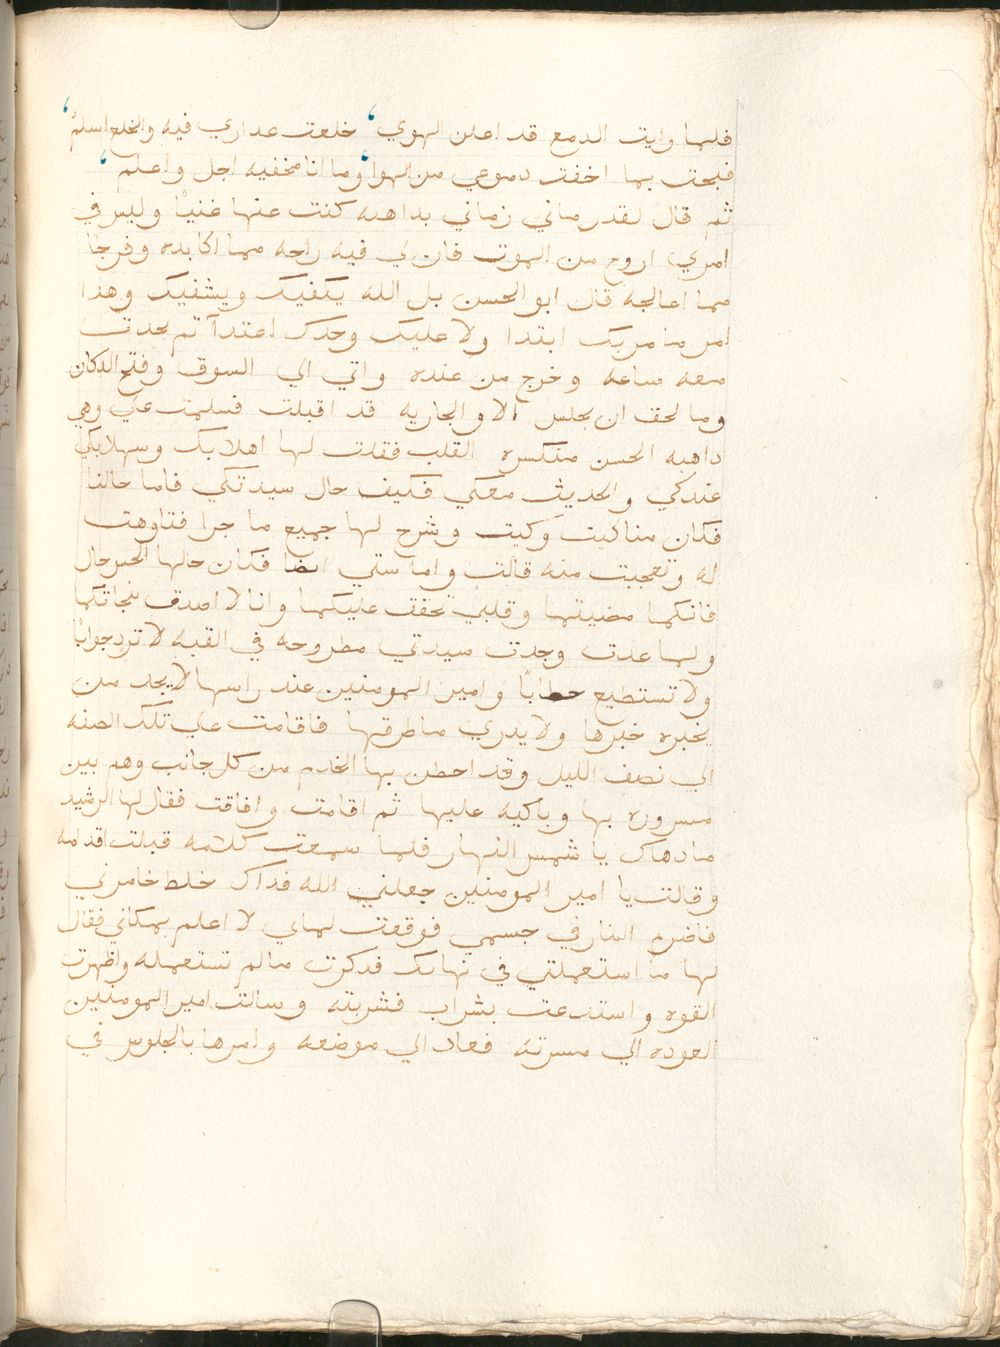 فلما رايت الدمع قد اعلن الهوي، خلعت عداري فيه والخلع اسلمُ،
فبحت بما اخفت دموعي من الهوا، وما انا مخفيه اجل واعلم،
ثم قال لقد رماني زماني بداهيه كنت عنها غنياً وليس في
امري اروح من الموت فان لي فيه راحه مما اكابده وفرجاً
مما اعالجه قال ابو الحسن بل الله يكفيك ويشفيك وهدا
امر منا مر بك ابتدا ولا عليك وحدك اعتدآ تم تحدت
معه ساعه وخرج من عنده واتي الي السوق وفتح الدكان
وما لحق ان يجلس الا والجاريه قد اقبلت فسلمت علي وهي
داهبه الحسن منكسره القلب فقلت لها اهلا بك وسهلا بكي
عندكي والحديث معكي فكيف حال سيدتكي فاما حالنا
فكان منا كيت وكيت وشرح لها جميع ما جرا فتاوهت
له وتعجبت منه قالت واما ستي ايضا فكان حالها انحس حال
فانكما مضيتما وقلبي تخفق عليكما وانا لا اصدق بنجاتكما
ولما عدت وجدت سيدتي مطروحه في القبه لا ترد جواباً
ولا تستطيع خطاباً وامير المومنين عند راسها لا يجد من
يخبره خبرها ولا يدري ما طرقها فاقامت علي تلك الصفه
الي نصف الليل وقد احطن بها الخادم من كل جانب وهم بين
مسروره بها وباكيه عليها ثم اقامت وافاقت فقال لها الرشيد
ما دهاك يا شمس النهار فلما سمعت كلامه قبلت اقدامه
وقالت يا امير المومنين جعلني الله فداك خلط خامرني
فاضرم النار في جسمي فوقعت لما بي لا اعلم بمكاني فقال
لها ما استعملتي في نهارك فدكرت ما لم تستعمله واظهرت
القوه واستدعت بشراب فشربته وسالت امير المومنين
العوده الي مسرته فعاد الي موضعه وامرها بالجلوس في